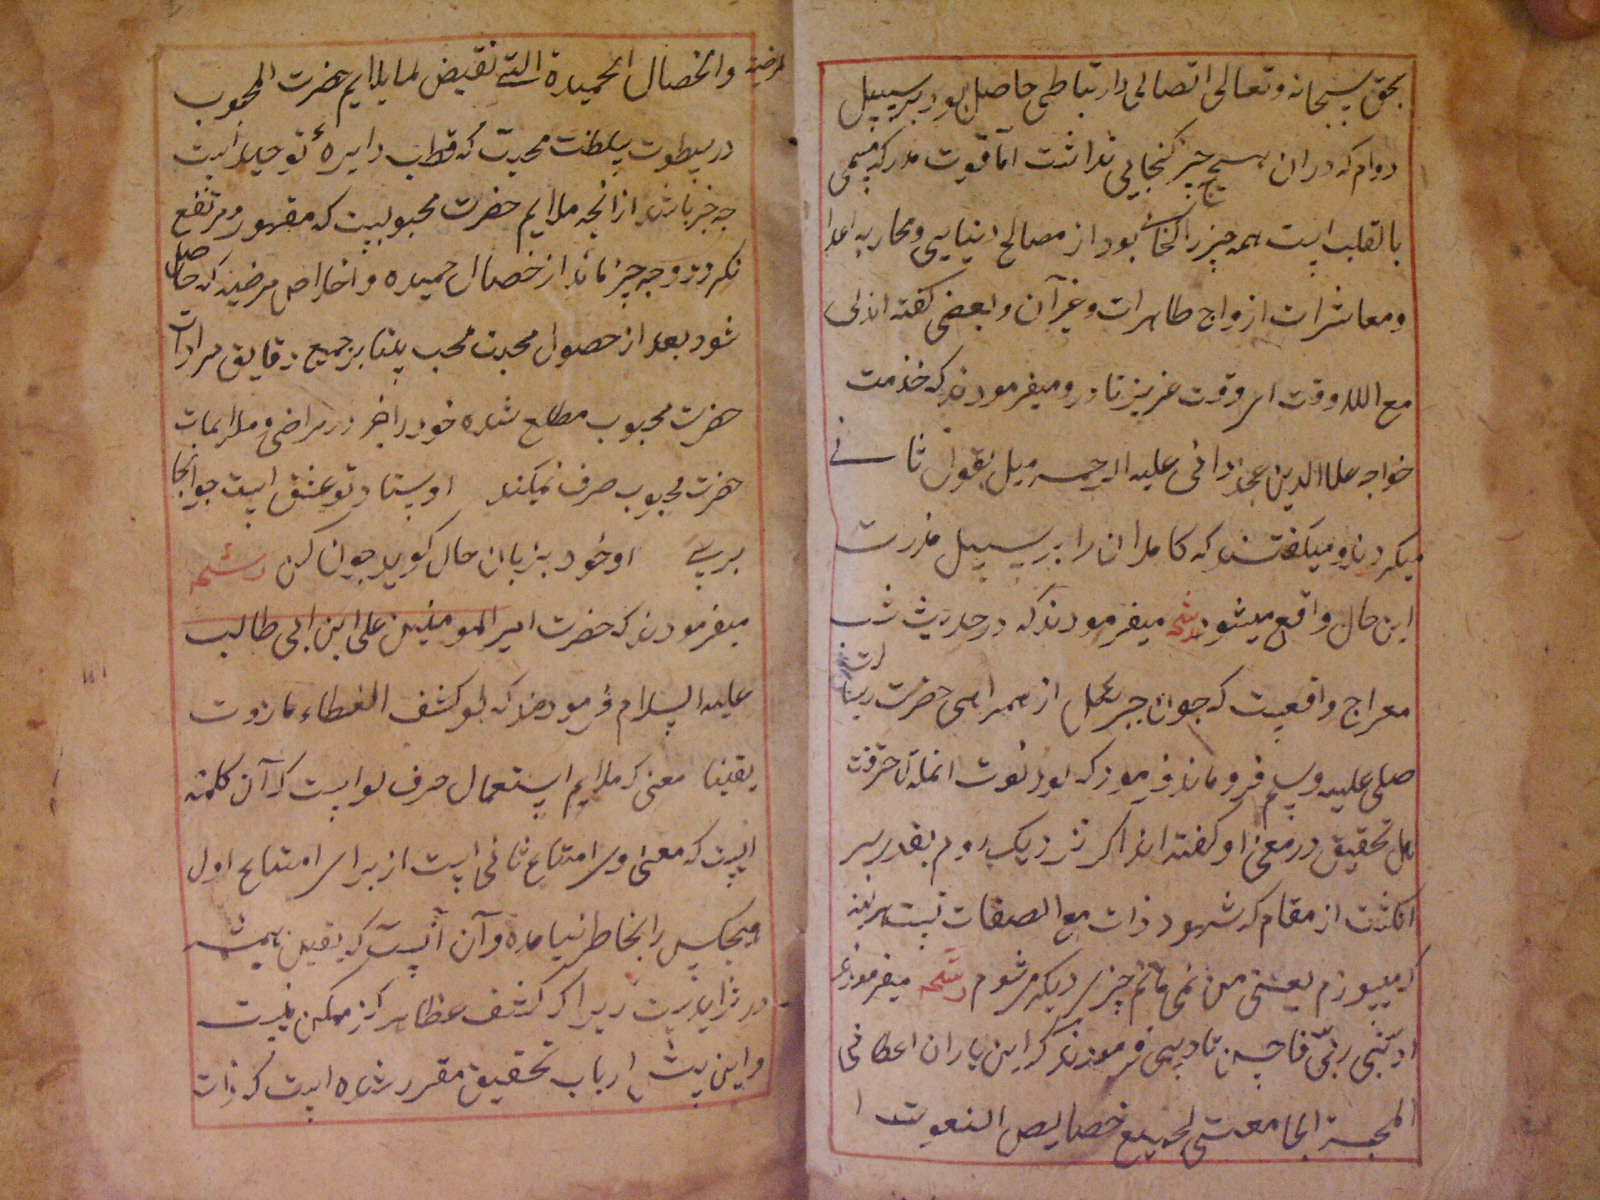 بحق سبحانه وتعالی اتصالی وارتباطی حاصل بود بر سبیل
دوام که دران هیچ چیز گنجایی نداشت اما قوت مدرکه مسمی
بالقلب است همه چیز را گنجائے بود از مصالح دنیایی ومحاربه اعدا
ومعاشرات ازواج طاهرات وغیرآن وبعضی گفته اند لی
مع الله وقت ای وقت عزیز نادر ومیفرمودند که خدمت
خواجه علاالدین غجدوانی علیه الرحمه میل بقول ثانے
میکردند ومیگفتند که کاملان را بر سبیل ندرت
این حال واقع میشود رشحه میفرمودند که در حدیث شب
معراج واقعیست که چون جبرئیل از همراهی حضرت رسالت
صلی علیه وسلم فرو ماند فرمود که لو دنوت انملة لاحترقت
اهل تحقیق در معنی او گفته اند اگر نزدیک روم بقدر سر
انگشت از مقام که شهود ذات مع الصفات نسبت
که میسوزم یعنی من نمی مانم چیزی دیگر میشوم رشحه میفرمودند
ادبنی ربی فاحسن تادیبی فرمودند که این یاران اعطانی
المحبة الجامعتی لجمیع خصایص النعوت
المرضیه والخصال الحمیدة التے نقیض لما یلایم حضرت المحبوب
در سطوت سلطنت محبت که قطب دایرهٔ توحید است
چه چیز باشد از آنچه ملایم حضرت محبوبیت که مقهور ومرتفع
نکردد وچه چیز ماند از خصال حمیده واخلاص مرضیه که حاصل
شود بعد از حصول محبت محب بنابر جمیع دقایق مرادات
حضرت محبوب مطلع شده خود را در مراضی وملایمات
حضرت محبوب صرف نمیکند اوستاد تو عشق است چو آنجا
برسے او خود بزبان حال گوید چون کن رشحه
میفرمودند که حضرت امیر المومنین علی ابن ابی طالب
علیه السلام فرمودند که لو کشف الغطاء مازدت
یقینا معنی که ملایم استعمال حرف لو است که آن کلمه
ایست که معنی وی امتناع ثانی است از برای امتناع اول
هیچکس را بخاطر نیامده وآن آنست که یقین همیشه
در تزایدست زیرا که کشف غطا هرگز ممکن نیست
واین پیش ارباب تحقیق مقرر شده است که ذات